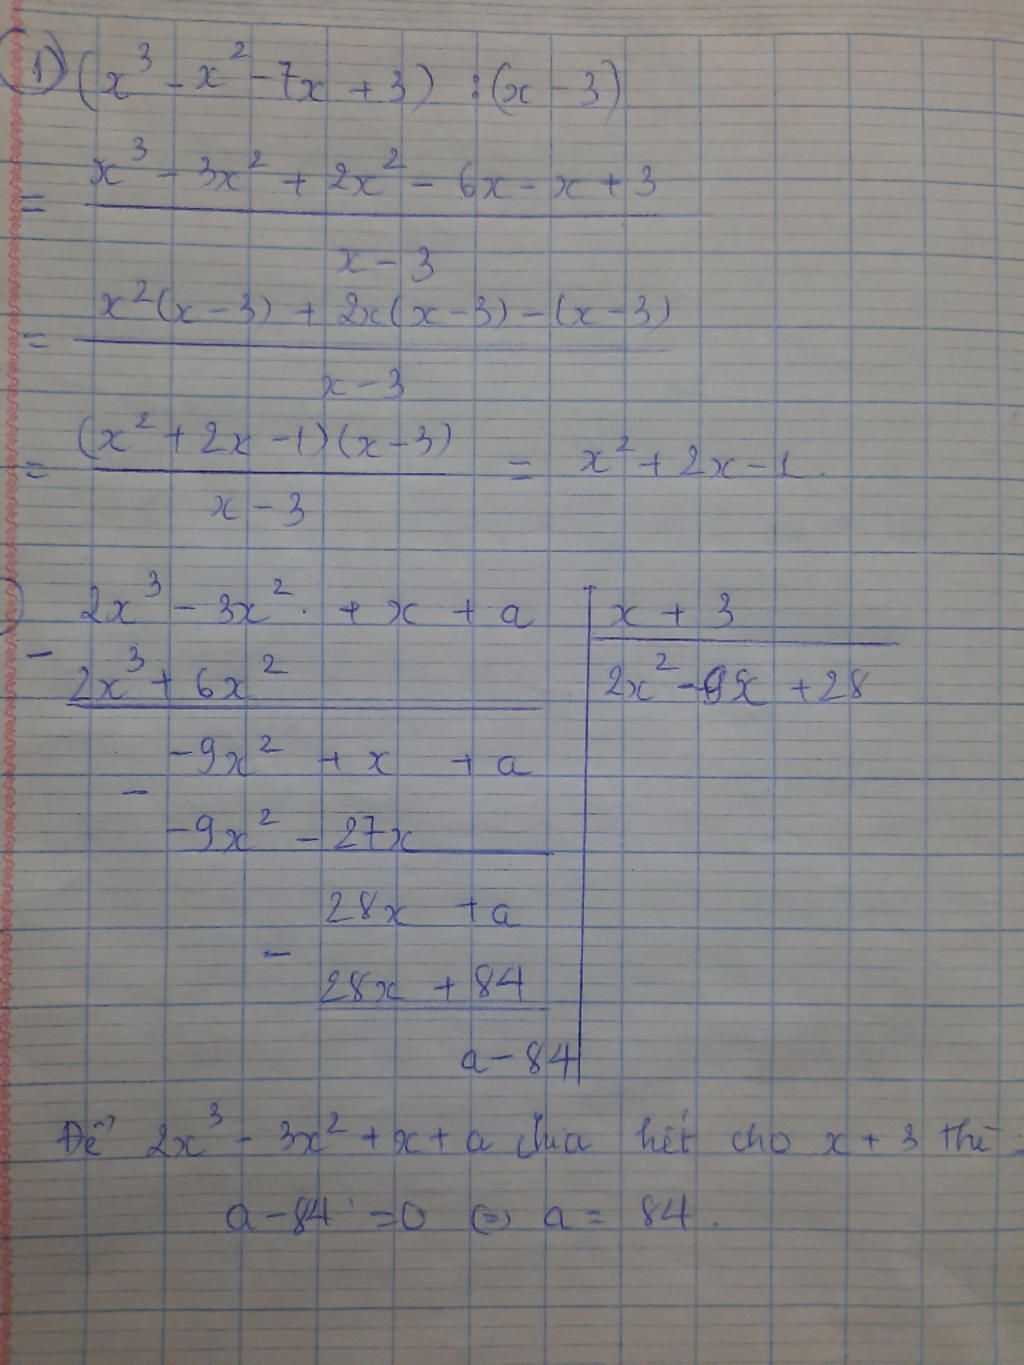 1) (x³ - x² - 7x + 3) : (x - 3)
x³ - 3x² + 2x² - 6x - x + 3
=
x - 3
x²(x - 3) + 2x(x - 3) - (x - 3)
=
x - 3
(x² + 2x - 1)(x - 3)
= = x² + 2x - 1.
x - 3
) 2x³ - 3x² + x + a | x + 3
-
2x³ + 6x² | 2x² - 9x + 28
-9x² + x + a
-
-9x² - 27x
28x + a
-
28x + 84
a - 84
Để 2x³ - 3x² + x + a chia hết cho x + 3 thì:
a - 84 = 0 (=) a = 84.